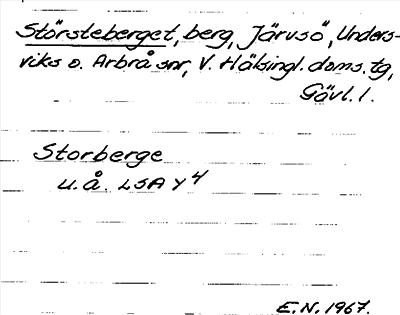 Störsteberget, berg, Järvsö, Unders-
viks o. Arbrå snr, V. Hälsingl. doms. tg,
Gävl. l.
Storberge
u. å. LSA Y 4
E. N. 1967.